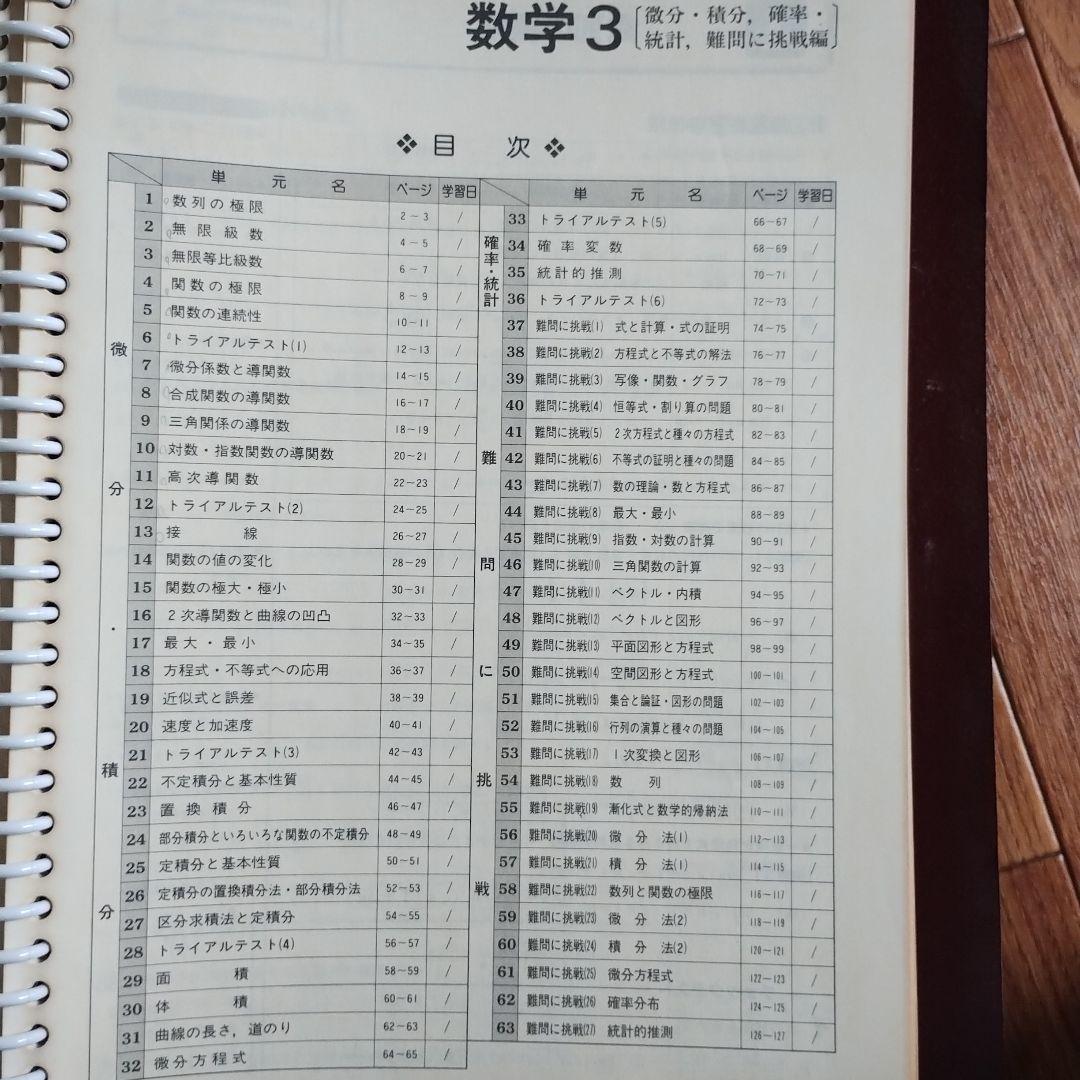 数学3 〔微分・積分，確率・
統計，難問に挑戦編〕
❖ 目 次 ❖
単 元 名 ページ 学習日
微分・積分
1 数列の極限 2～3 /
2 無限級数 4～5 /
3 無限等比級数 6～7 /
4 関数の極限 8～9 /
5 関数の連続性 10～11 /
6 トライアルテスト(1) 12～13 /
7 微分係数と導関数 14～15 /
8 合成関数の導関数 16～17 /
9 三角関係の導関数 18～19 /
10 対数・指数関数の導関数 20～21 /
11 高次導関数 22～23 /
12 トライアルテスト(2) 24～25 /
13 接 線 26～27 /
14 関数の値の変化 28～29 /
15 関数の極大・極小 30～31 /
16 2次導関数と曲線の凹凸 32～33 /
17 最大・最小 34～35 /
18 方程式・不等式への応用 36～37 /
19 近似式と誤差 38～39 /
20 速度と加速度 40～41 /
21 トライアルテスト(3) 42～43 /
22 不定積分と基本性質 44～45 /
23 置換積分 46～47 /
24 部分積分といろいろな関数の不定積分 48～49 /
25 定積分と基本性質 50～51 /
26 定積分の置換積分法・部分積分法 52～53 /
27 区分求積法と定積分 54～55 /
28 トライアルテスト(4) 56～57 /
29 面 積 58～59 /
30 体 積 60～61 /
31 曲線の長さ，道のり 62～63 /
32 微分方程式 64～65 /
単 元 名 ページ 学習日
確率・統計
33 トライアルテスト(5) 66～67 /
34 確率変数 68～69 /
35 統計的推測 70～71 /
36 トライアルテスト(6) 72～73 /
難問に挑戦
37 難問に挑戦(1) 式と計算・式の証明 74～75 /
38 難問に挑戦(2) 方程式と不等式の解法 76～77 /
39 難問に挑戦(3) 写像・関数・グラフ 78～79 /
40 難問に挑戦(4) 恒等式・割り算の問題 80～81 /
41 難問に挑戦(5) 2次方程式と種々の方程式 82～83 /
42 難問に挑戦(6) 不等式の証明と種々の問題 84～85 /
43 難問に挑戦(7) 数の理論・数と方程式 86～87 /
44 難問に挑戦(8) 最大・最小 88～89 /
45 難問に挑戦(9) 指数・対数の計算 90～91 /
46 難問に挑戦(10) 三角関数の計算 92～93 /
47 難問に挑戦(11) ベクトル・内積 94～95 /
48 難問に挑戦(12) ベクトルと図形 96～97 /
49 難問に挑戦(13) 平面図形と方程式 98～99 /
50 難問に挑戦(14) 空間図形と方程式 100～101 /
51 難問に挑戦(15) 集合と論証・図形の問題 102～103 /
52 難問に挑戦(16) 行列の演算と種々の問題 104～105 /
53 難問に挑戦(17) 1次変換と図形 106～107 /
54 難問に挑戦(18) 数 列 108～109 /
55 難問に挑戦(19) 漸化式と数学的帰納法 110～111 /
56 難問に挑戦(20) 微 分 法(1) 112～113 /
57 難問に挑戦(21) 積 分 法(1) 114～115 /
58 難問に挑戦(22) 数列と関数の極限 116～117 /
59 難問に挑戦(23) 微 分 法(2) 118～119 /
60 難問に挑戦(24) 積 分 法(2) 120～121 /
61 難問に挑戦(25) 微分方程式 122～123 /
62 難問に挑戦(26) 確率分布 124～125 /
63 難問に挑戦(27) 統計的推測 126～127 /